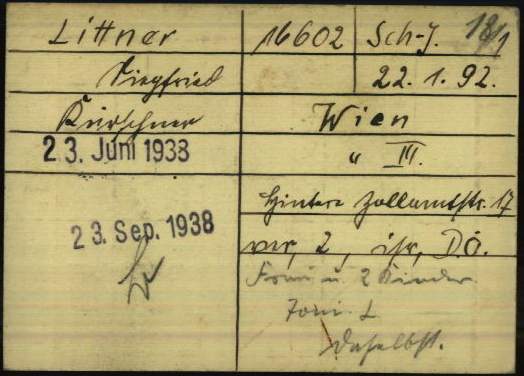 Littner 16602 Sch-J. 18/1
Siegfried 22.1.92.
Kürschner Wien
23. Juni 1938 " III.
Hintere Zollamtstr. 17
23. Sep. 1938 ver, 2, isr, D.Ö.
Frau u. 2 Kinder
Toni L
daselbst.